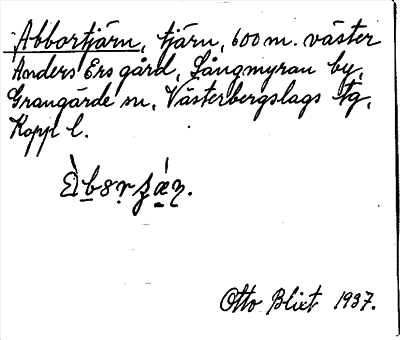 Abbortjärn, tjärn, 600 m. väster
Anders Ers gård, Långmyran by,
Grangärde sn, Västerbergslags tg,
Kopp. l.
Otto Blixt 1937.